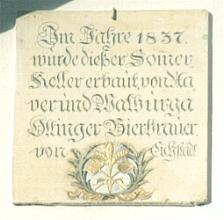 Im Jahre 1837.
wurde dießer Som̄er
Keller erbaut, von Xa
ver und Walburga
Ottinger Bierbrauer,
von Eichstätt